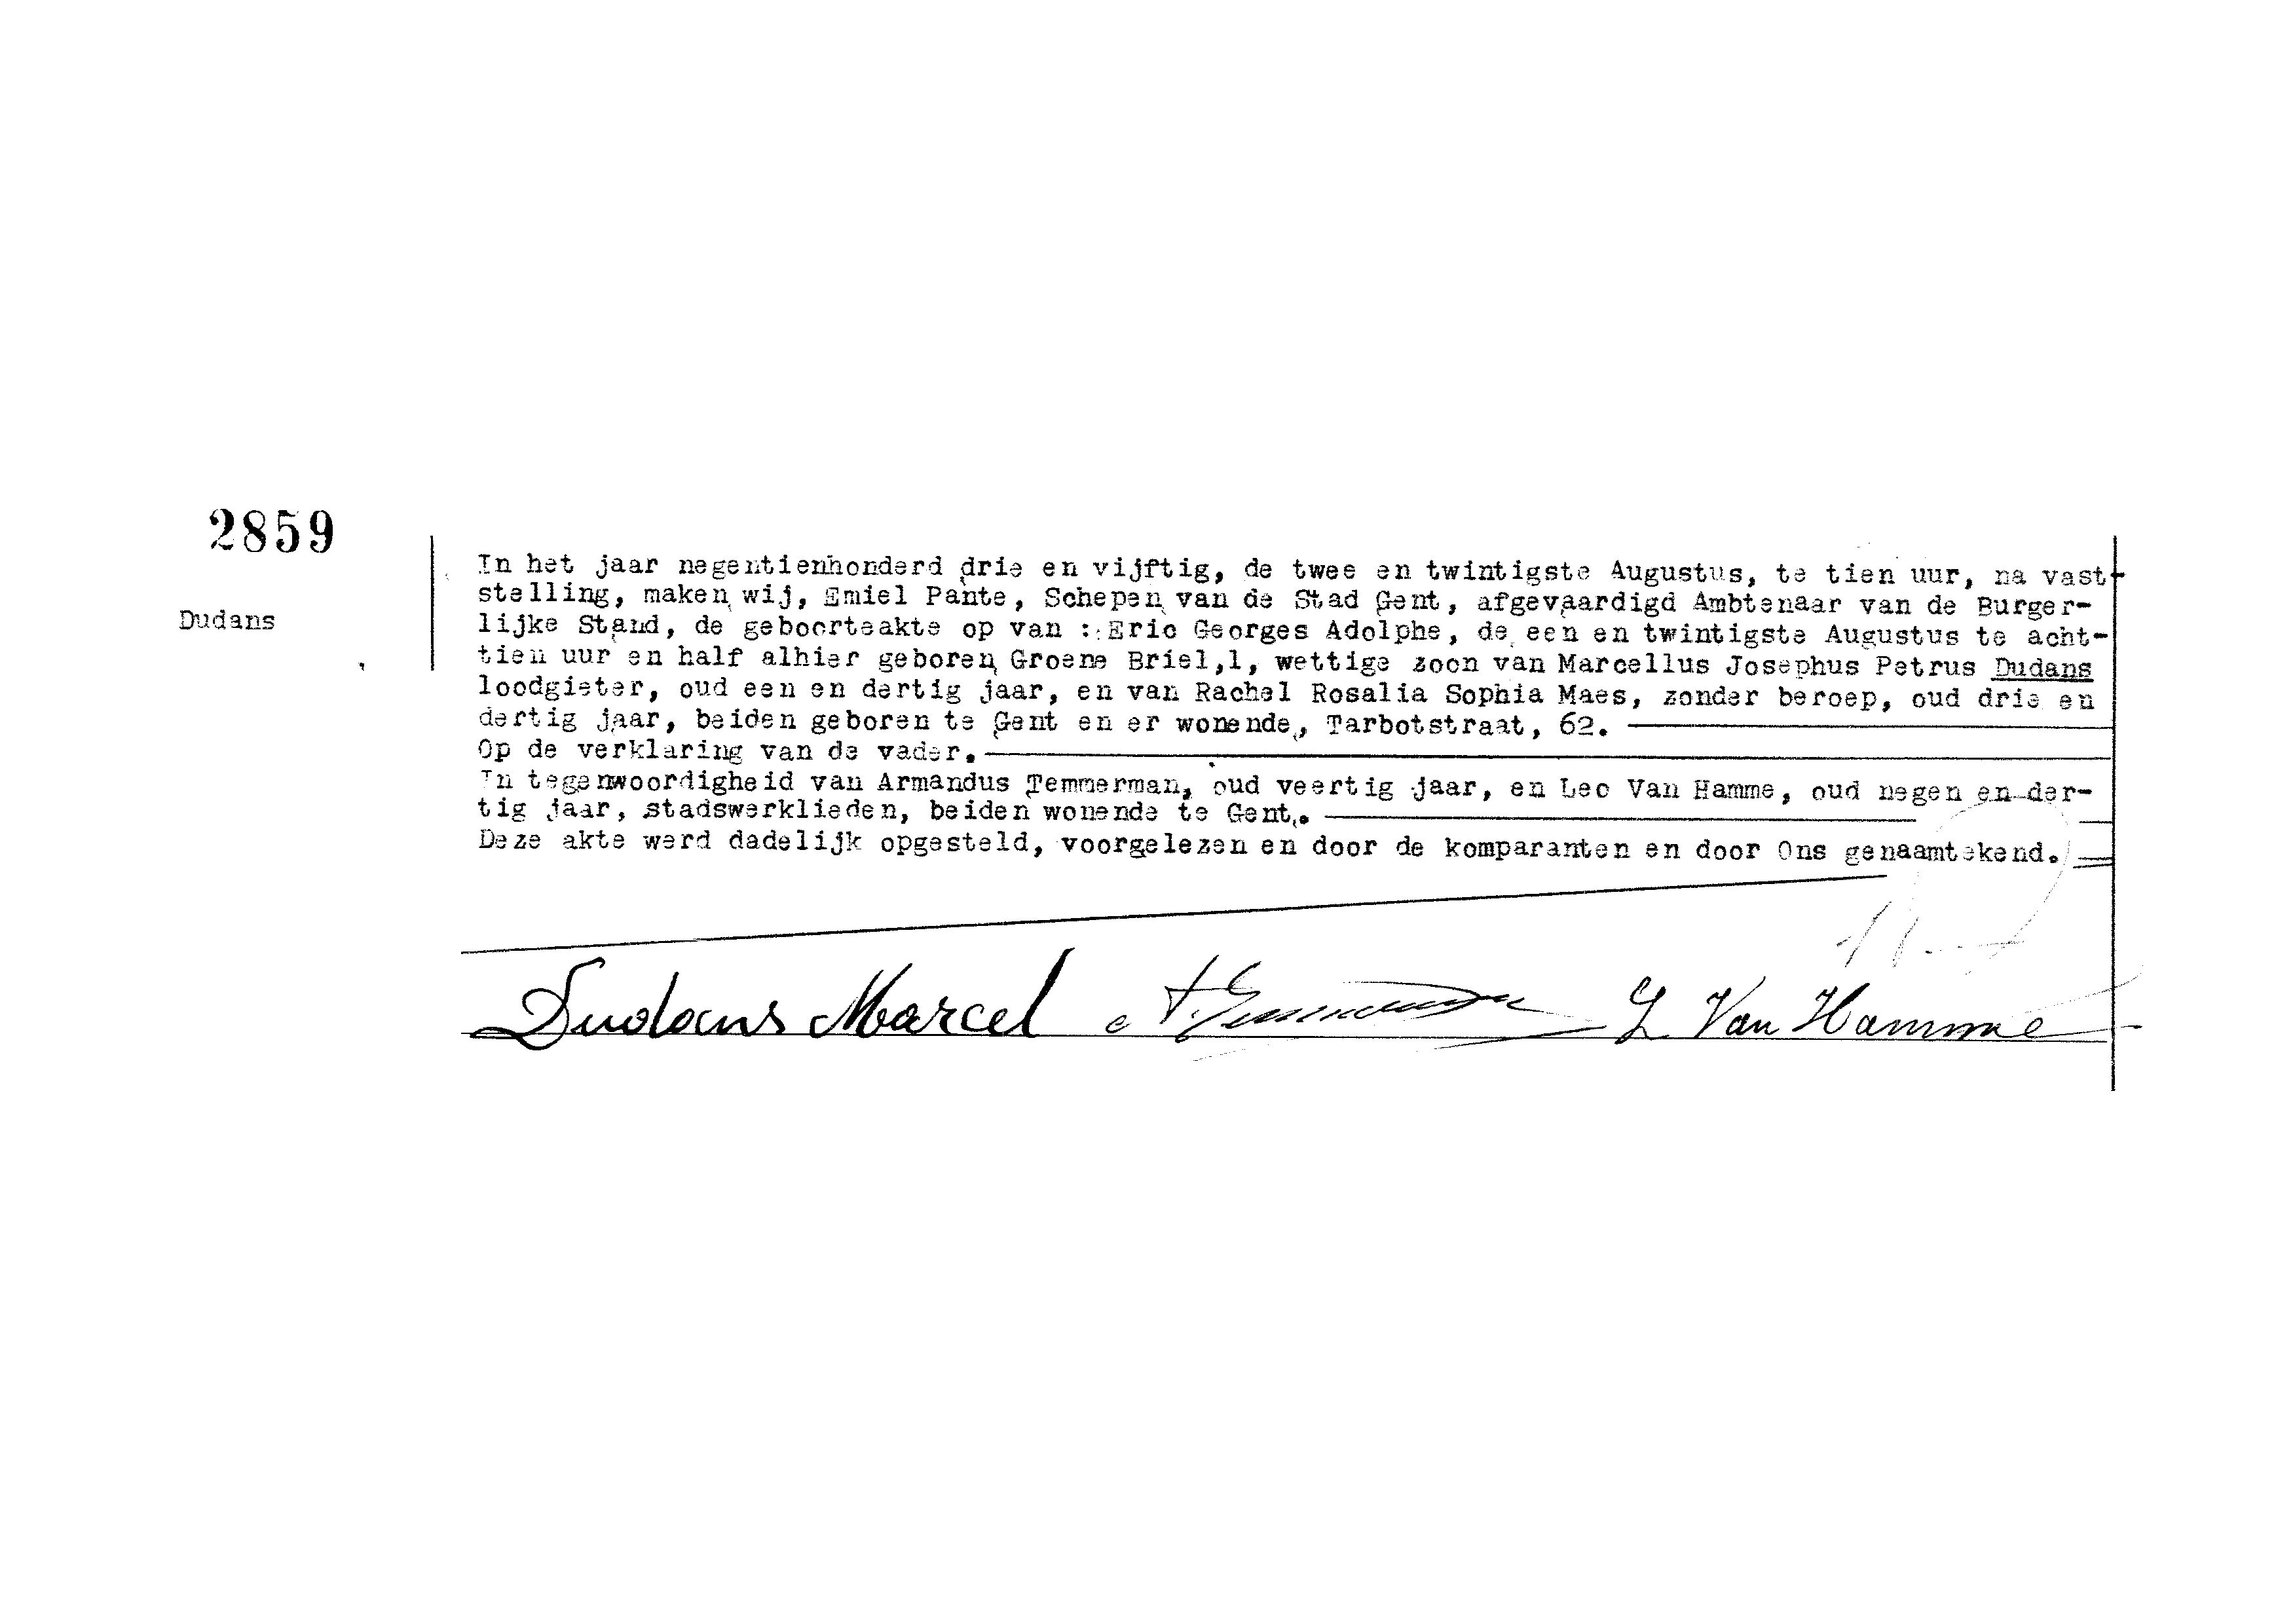 2859
Dudans
In het jaar negentienhonderd drie en vijftig, de twee en twintigste Augustus, te tien uur, na vast-
stelling, maken wij, Emiel Pante, Schepen van de Stad Gent, afgevaardigd Ambtenaar van de Burger-
lijke Stand, de geboorteakte op van : Eric Georges Adolphe, de een en twintigste Augustus te acht-
tien uur en half alhier geboren Groene Briel,1, wettige zoon van Marcellus Josephus Petrus Dudans
loodgieter, oud een en dertig jaar, en van Rachel Rosalia Sophia Maes, zonder beroep, oud drie en
dertig jaar, beiden geboren te Gent en er wonende, Tarbotstraat, 62.
Op de verklaring van de vader.
In tegenwoordigheid van Armandus Temmerman, oud veertig jaar, en Leo Van Hamme, oud negen en der-
tig jaar, stadswerklieden, beiden wonende te Gent.
Deze akte werd dadelijk opgesteld, voorgelezen en door de komparanten en door Ons genaamtekend.
Dudans Marcel A. Temmerman L Van Hamme